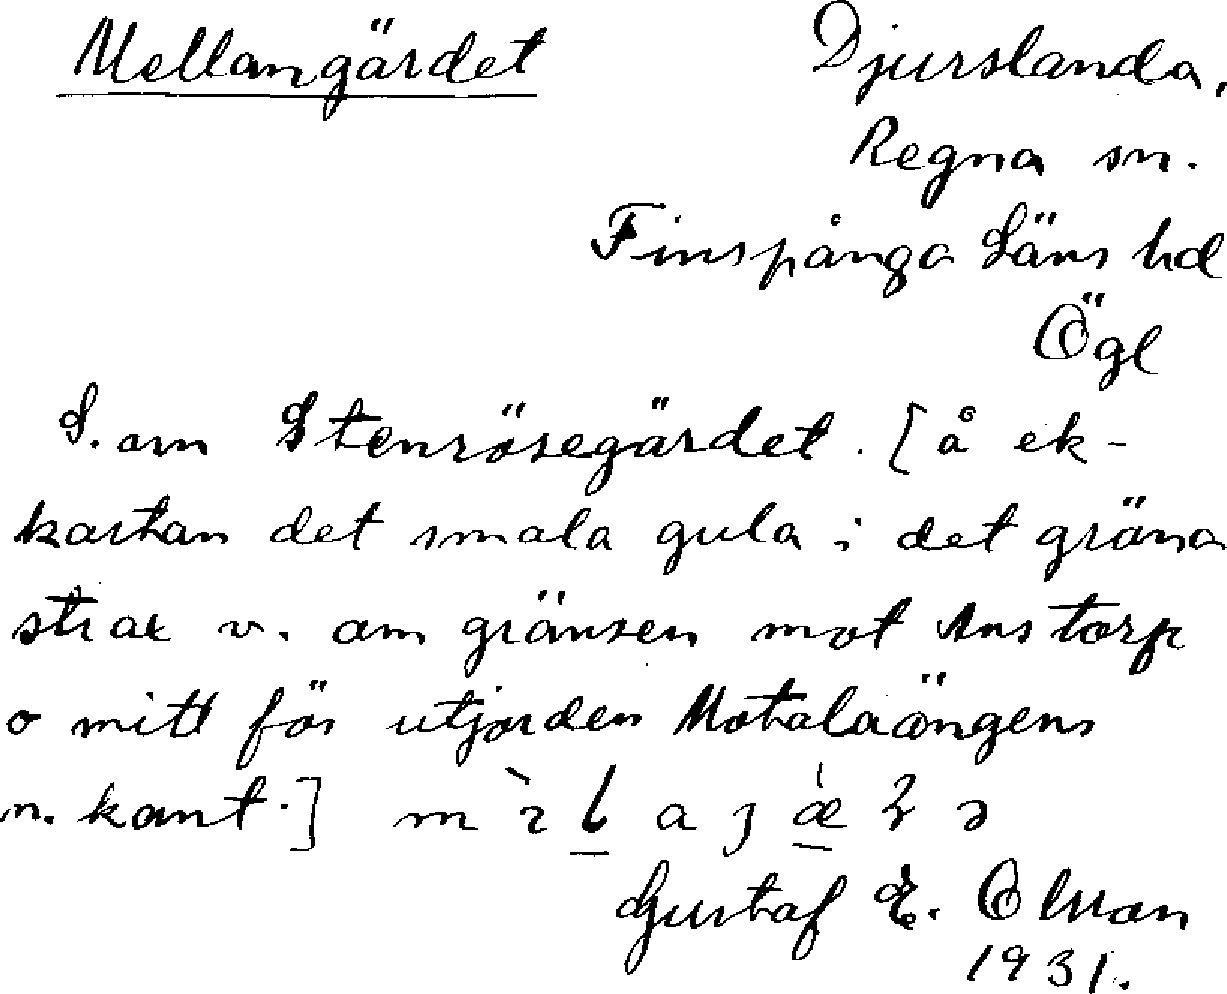 Mellangärdet
Djurslanda,
Regna sn.
Finspånga Läns hd
Ögl
S. om Stenrösegärdet. [å ek-
kartan det smala gula i det gröna
strax v. om gränsen mot Anstorp
o mitt för utjorden Motalaängens
n. kant.]
Gustaf E.
1931.